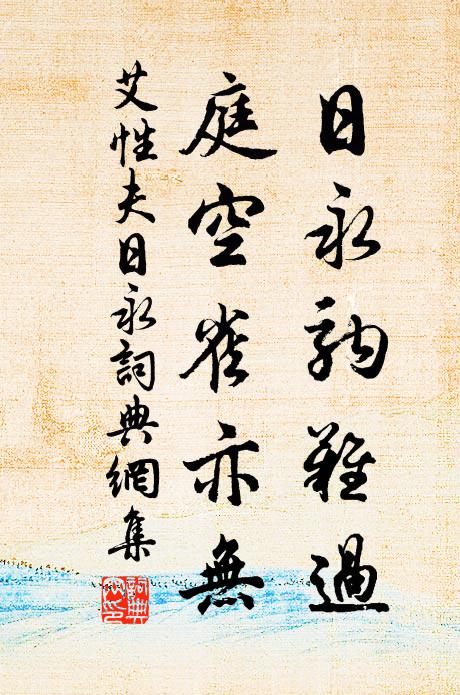 日永駒難過
庭空雀亦無
艾性夫日永詞典網集